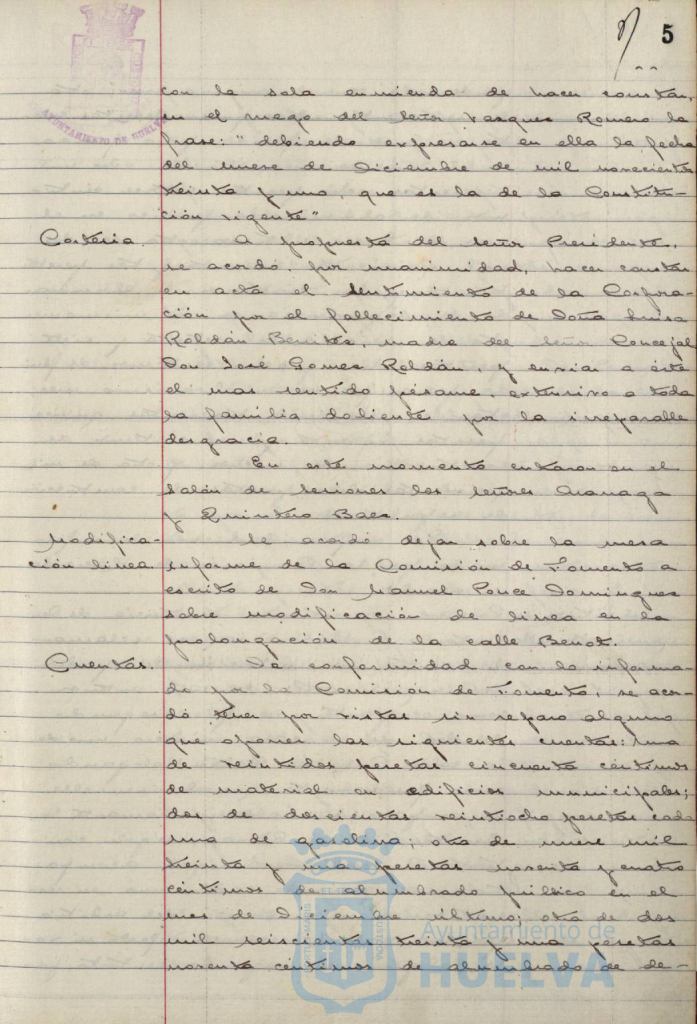 5
AYUNTAMIENTO DE HUELVA
con la sola enmienda de hacer constar,
en el ruego del Señor Vasques Romero la
frase: "debiendo expresarse en ella la fecha
del nueve de Diciembre de mil novecientos
treinta y uno, que es la de la Constitu-
ción vigente"
Cortesia. A propuesta del Señor Presidente,
se acordó, por unanimidad, hacer constar
en acta el sentimiento de la Corpora-
ción por el fallecimiento de Doña Luisa
Roldán Benites, madre del Señor Concejal
Don José Gomes Roldán, y enviar a éste
el mas sentido pésame, extensivo a toda
la familia doliente por la irreparable
desgracia.
En este momento entraron en el
Salón de Sesiones los Señores Aranaga
y Quintero Baes.
Modifica- Se acordó dejar sobre la mesa
ción linea. informe de la Comisión de Fomento a
escrito de Don Manuel Ponce Domingues
sobre modificación de linea en la
prolongación de la calle Benot.
Cuentas. De conformidad con lo informa-
do por la Comisión de Fomento, se acor-
dó tener por vistas sin reparo alguno
que oponer las siguientes cuentas: una
de veintidos pesetas cincuenta céntimos
de material en edificios municipales;
dos de doscientas veintiocho pesetas cada
una de gasolina; otra de nueve mil
treinta y una pesetas noventa y cuatro
céntimos de alumbrado público en el
mes de Diciembre último; otra de dos
mil seiscientas treinta y una pesetas
noventa céntimos de alumbrado de de-
Ayuntamiento de
HUELVA